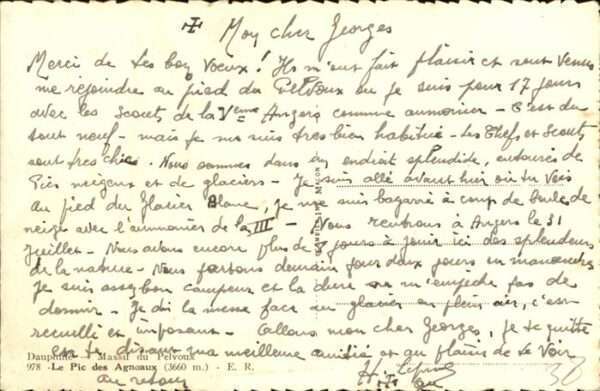 Mon cher Georges
Merci de tes bons voeux ! Ils m'ont fait plaisir et sont venus
me rejoindre au pied du Pelvoux où je suis pour 17 jours
avec les Scouts de la Vème Angers comme aumonier - C'est du
tout neuf - mais je me suis très bien habitué - Les Chefs et Scouts
sont très chics. Nous sommes dans un endroit splendide, entourés de
Pics neigeux et de glaciers - Je suis allé avant hier où tu vois
au pied du Glacier Blanc, je me suis bagarré à coup de boules de
neige avec l'aumonier de la III - Nous rentrons à Angers le 31
Juillet - Nous avons encore plus de 8 jours à jouir ici des splendeurs
de la nature - Nous partons demain pour deux jours en manoeuvres
Je suis assez bon campeur et la dure ne m'empêche pas de
dormir - Je dis la messe face au glacier en plein air, c'est
recueilli et imposant - Allons mon cher Georges, je te quitte
en te disant ma meilleure amitié et au plaisir de te voir
au retour
Dauphiné - Massif du Pelvoux
978 - Le Pic des Agneaux (3660 m.) - E. R.